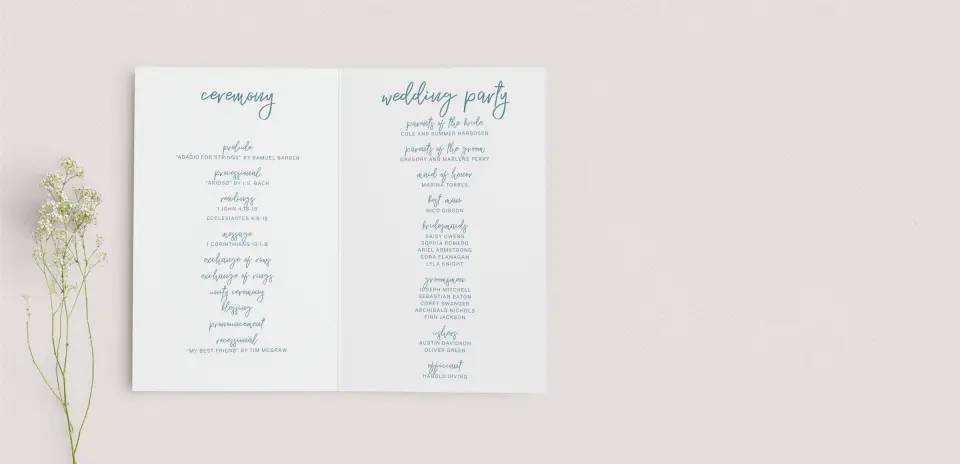 ceremony
prelude
"ADAGIO FOR STRINGS" BY SAMUEL BARBER
processional
"ARIOSO" BY J.S. BACH
readings
1 JOHN 4:18-19
ECCLESIASTES 4:9-12
message
1 CORINTHIANS 13:1-8
exchange of vows
exchange of rings
unity ceremony
blessing
pronouncement
recessional
"MY BEST FRIEND" BY TIM MCGRAW
wedding party
parents of the bride
COLE AND SUMMER HARBOSEN
parents of the groom
GREGORY AND MARLENE PERRY
maid of honor
MARINA TORRES
best man
NICO GIBSON
bridesmaids
DAISY OWENS
SOPHIA ROMERO
ARIEL ARMSTRONG
CORA FLANAGAN
LYLA KNIGHT
groomsmen
JOSEPH MITCHELL
SEBASTIAN EATON
COREY SWANGER
ARCHIBALD NICHOLS
FINN JACKSON
ushers
AUSTIN DAVIDSON
OLIVER GREEN
officiant
HAROLD IRVING